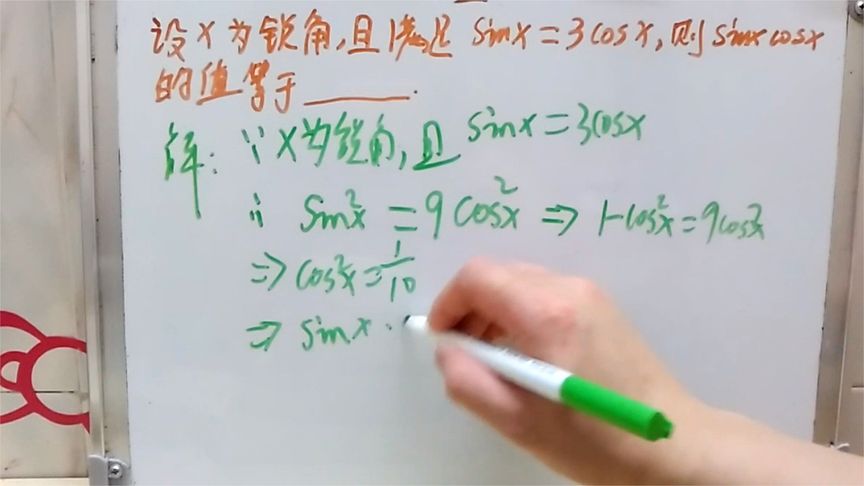 设x为锐角,且满足 sinx=3cosx,则sinxcosx
的值等于______.
解:∵x为锐角,且 sinx=3cosx
∴ sin²x=9cos²x ⇒ 1-cos²x=9cos²x
⇒ cos²x=1/10
⇒ sinx·